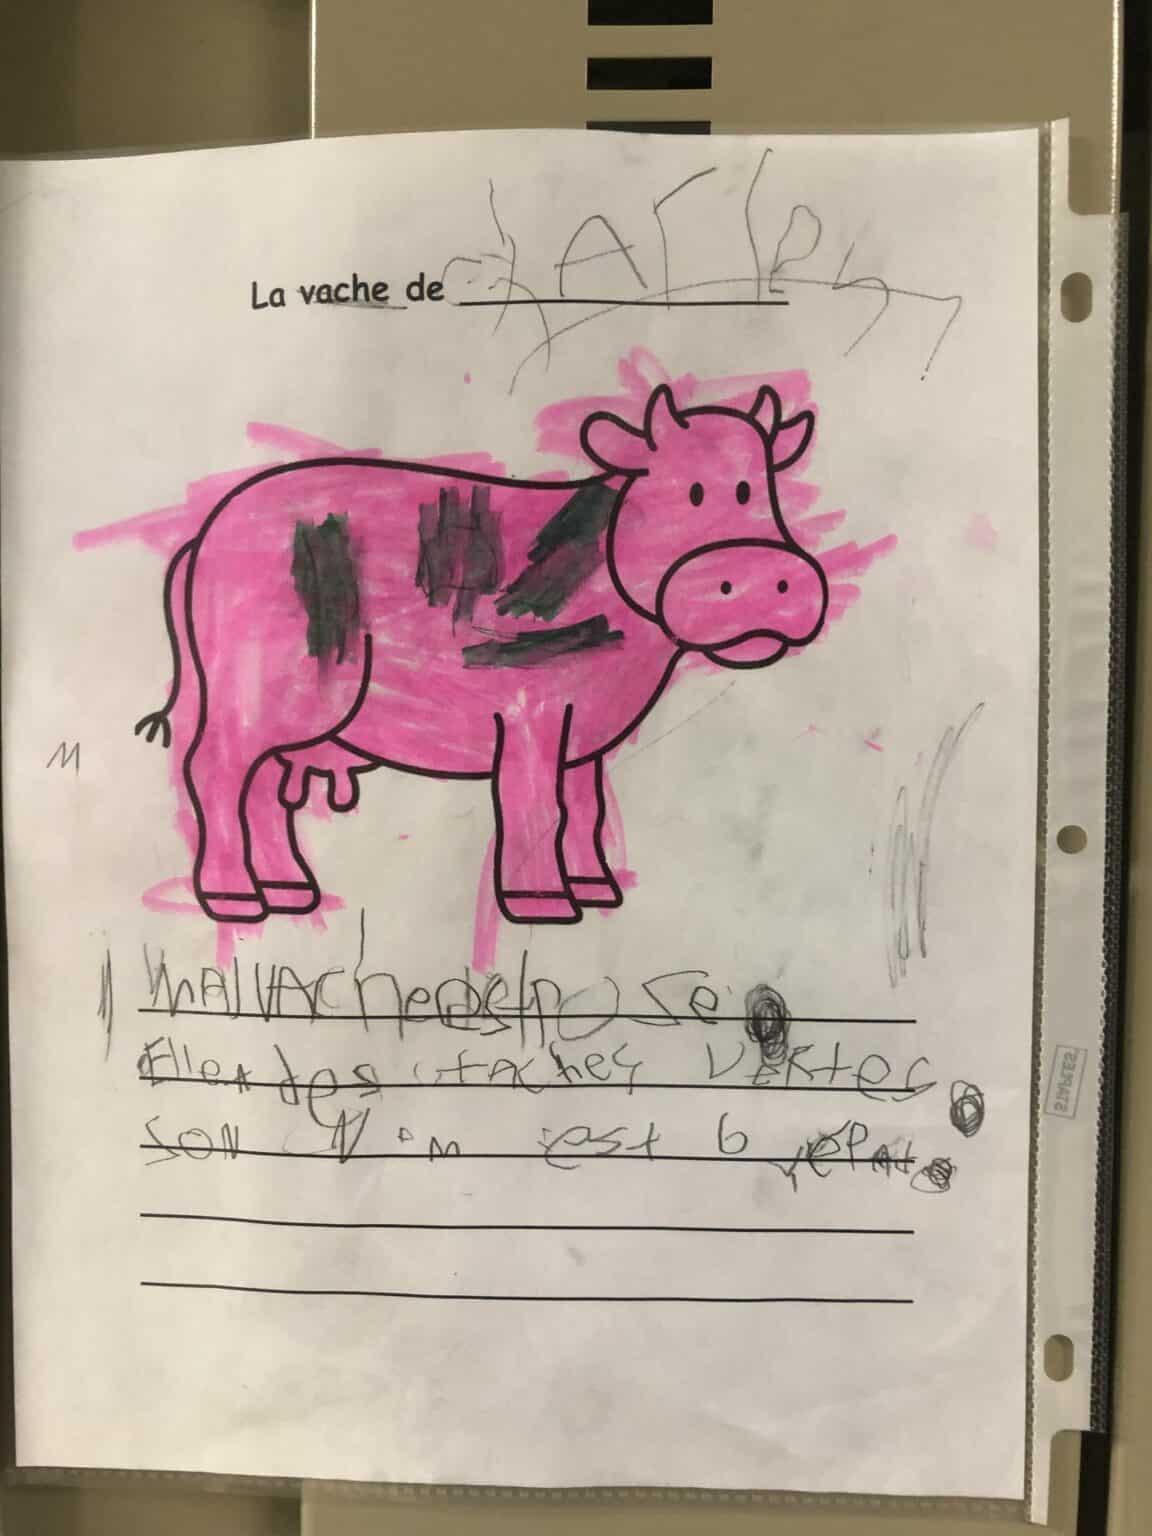 La vache de cHArles
M
mAlVAche est rose.
Elle a des taches vertes
son N m est
STAPLES